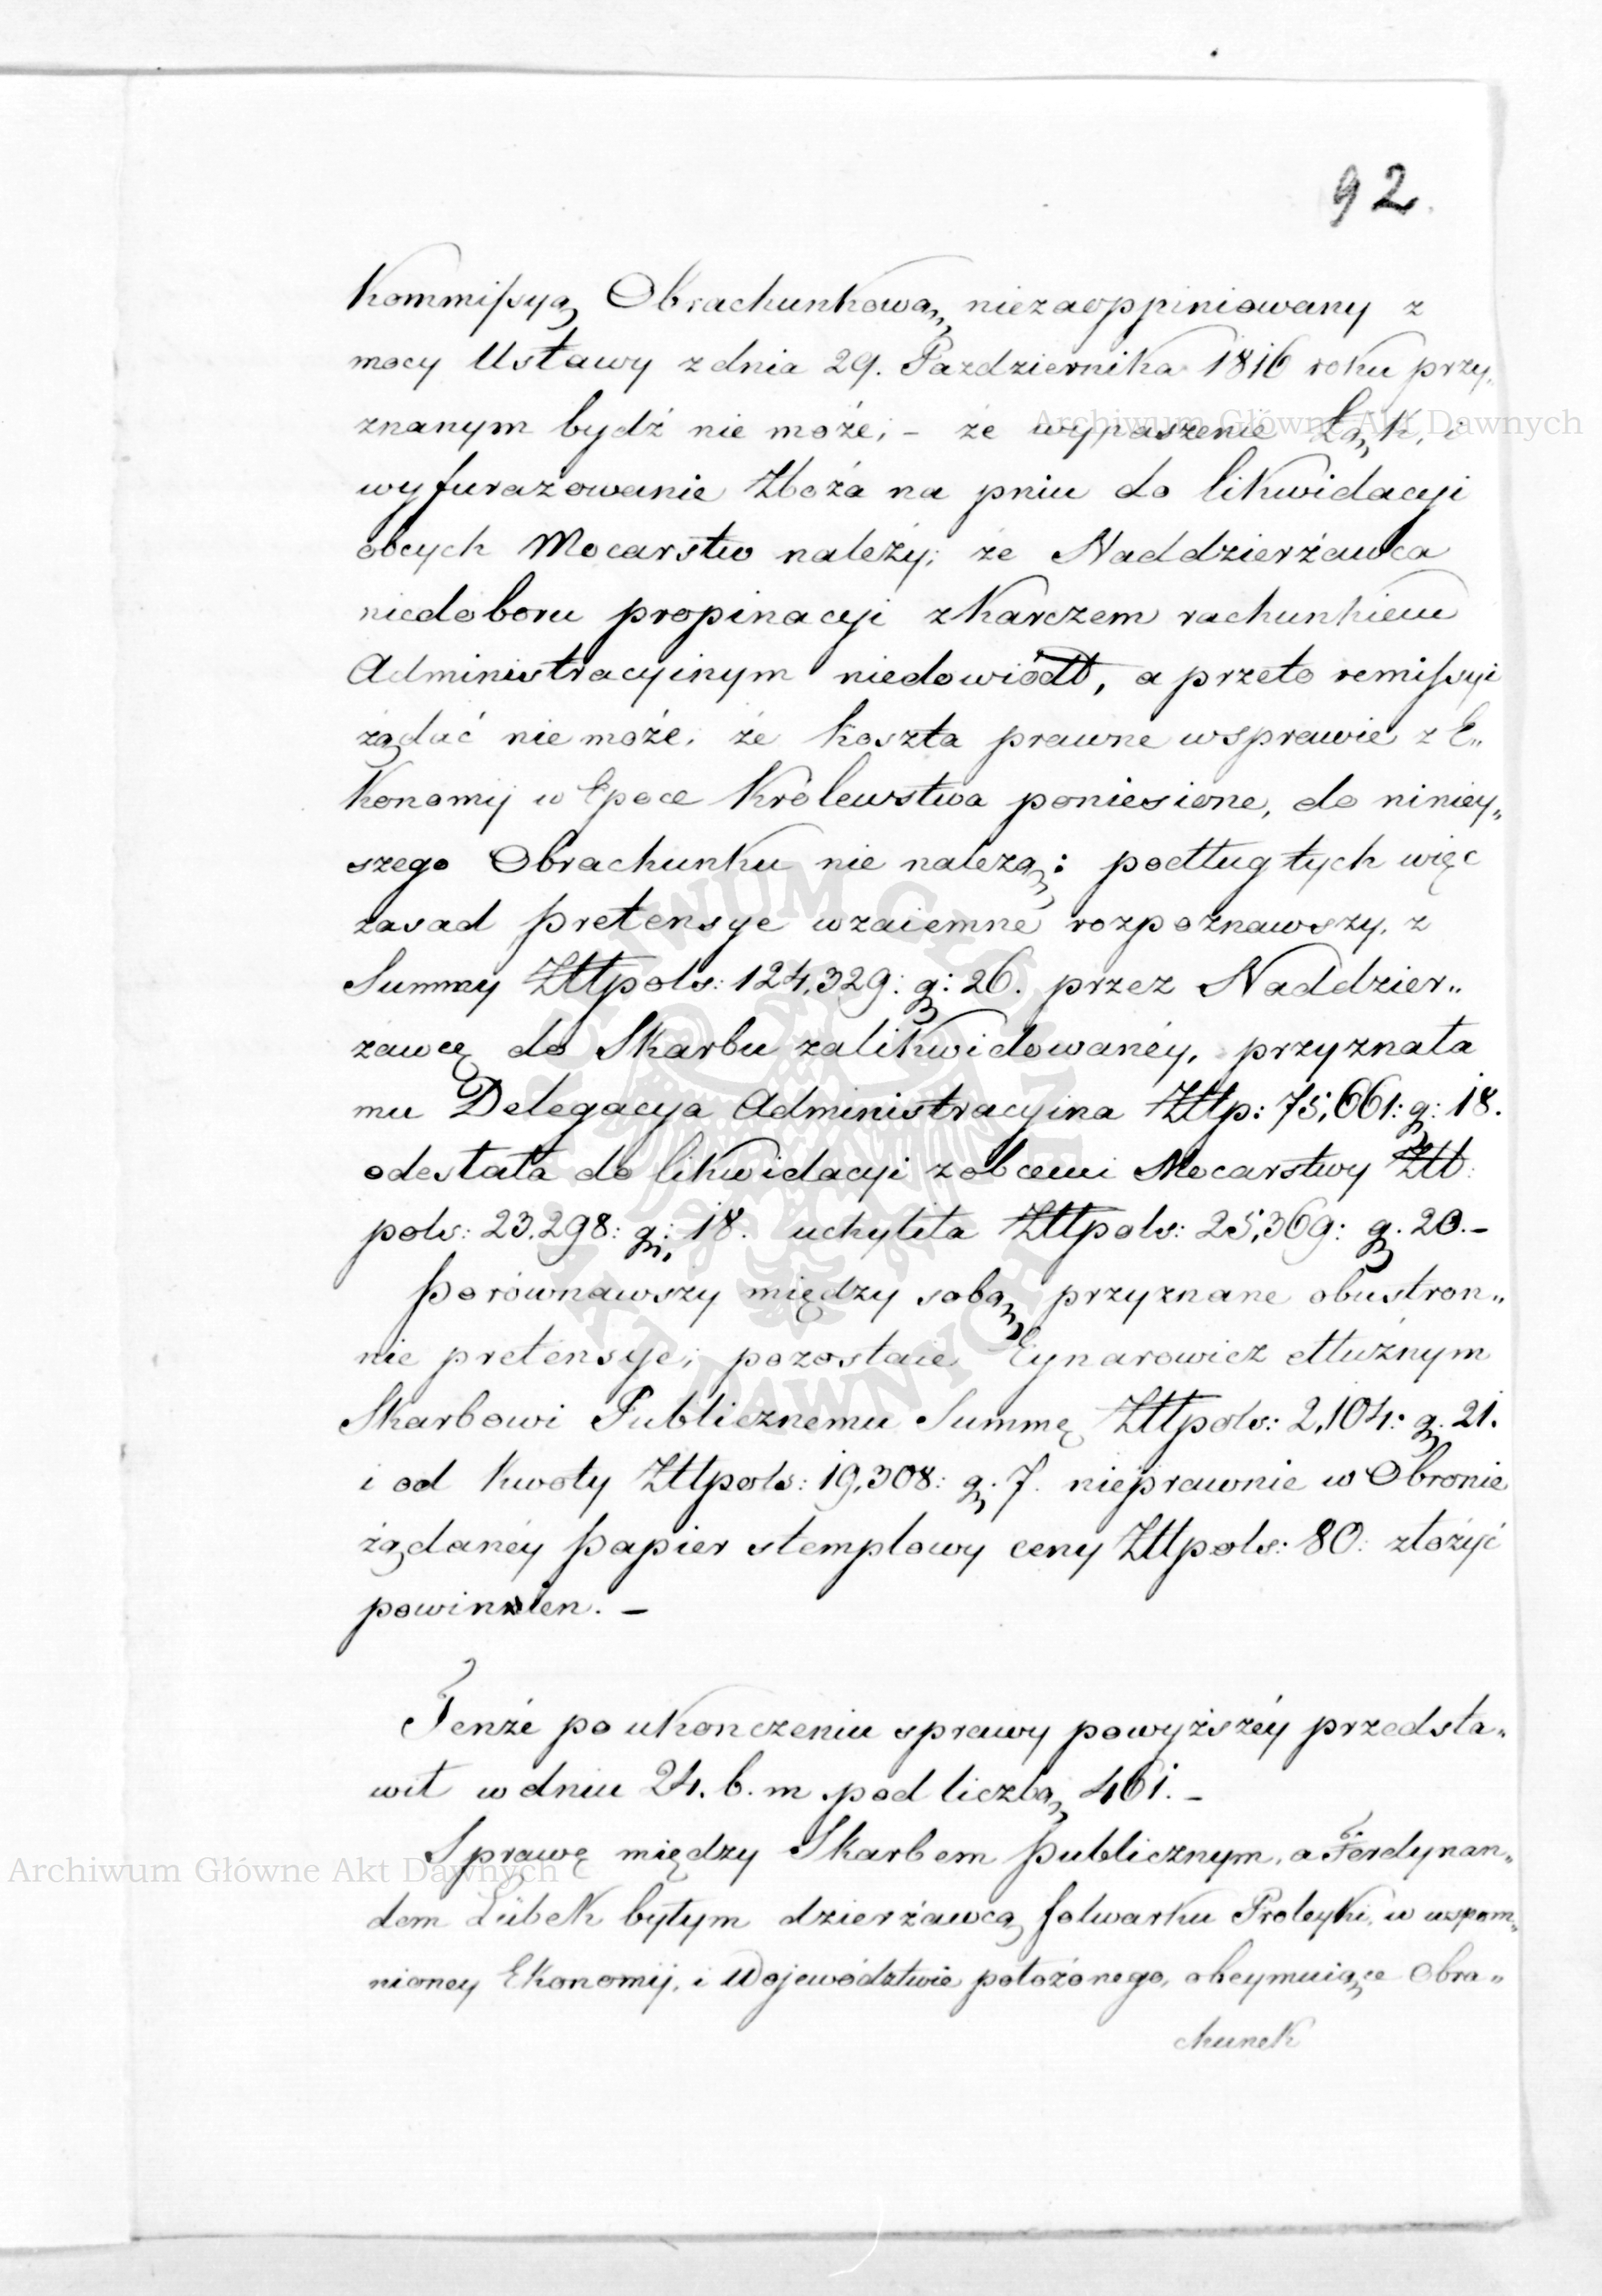 92.
Kommissyą Obrachunkową, niezaoppiniowany z
mocy Ustawy z dnia 29. Pazdziernika 1816 roku przy„
znanym bydź nie może; – że wypaszenie Łąk, i
wyfurażowanie Zboża na pniu do likwidacyi
obcych Mocarstw należy; że Naddzierżawca
niedoboru propinacyi z Karczem rachunkiem
Administracyinym niedowiódł, a przeto remissyi
żądać nie może; że koszta prawne w sprawie z E„
Konomij w Epoce Królewstwa poniesione, do niniey„
szego Obrachunku nie należą; podług tych więc
zasad pretensye wzaiemne rozpoznawszy, z
Summy Złłpols: 124,329: g: 26. przez Naddzier„
żawcę do Skarbu zalikwidowanéy, przyznała
mu Delegacya Administracyina Złłp: 75,661: g: 18.
odesłała do likwidacyi z obcemi Mocarstwy Złł:
pols: 23,298: g: 18. uchyliła Złłpols: 25,369: g. 20.–
Porównawszy między sobą przyznane obustron„
nie pretensye; pozostaie Cynarowicz dłużnym
Skarbowi Publicznemu Summę Złłpols: 2,104: g. 21.
i od kwoty Złłpols: 19,308: g. 7. nieprawnie w Obronie
żądanéy papier stemplowy ceny Złłpols: 80: złożyć
powinien. –
Tenże po ukonczeniu sprawy powyższéy przedsta„
wił w dniu 24. b. m. pod liczbą 461. –
Sprawę między Skarbem publicznym, a Ferdynan„
dem Lübek byłym dzierżawcą folwarku Proleyki, w wspom„
nioney Ekonomij, i Województwie położonego, obeymuiące Obra„
chunek
Archiwum Główne Akt Dawnych
Archiwum Główne Akt Dawnych
ARCHIWUM GŁÓWNE AKT DAWNYCH